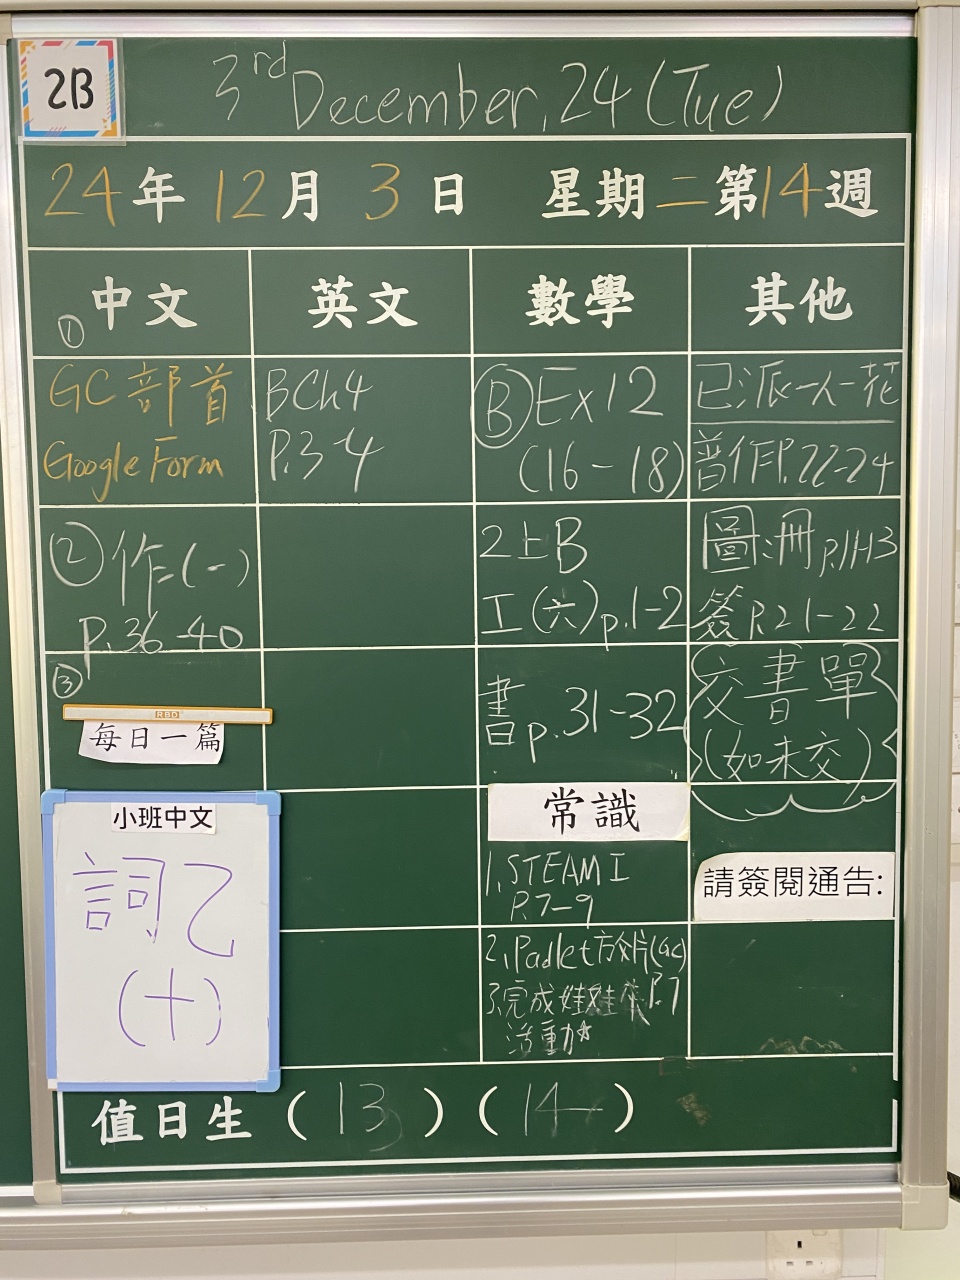 2B
3rd December, 24 (Tue)
24年 12月 3日 星期二 第14週
中文 英文 數學 其他
①
GC 部首
Google Form
② 作(一)
P.36-40
③
RBD
每日一篇
小班中文
詞乙
(十)
BCh4
P.3-4
Ⓑ Ex 12
(16-18)
2上B
工(六) p.1-2
書 p.31-32
常識
1. STEAM I
P.7-9
2. Padlet 放片(GC)
3. 完成娃娃 P.7
活動*
已派一人一花
普作P.22-24
圖:冊 p.11-13
簽P.21-22
交書單
(如未交)
請簽閱通告:
值日生 (13) (14)